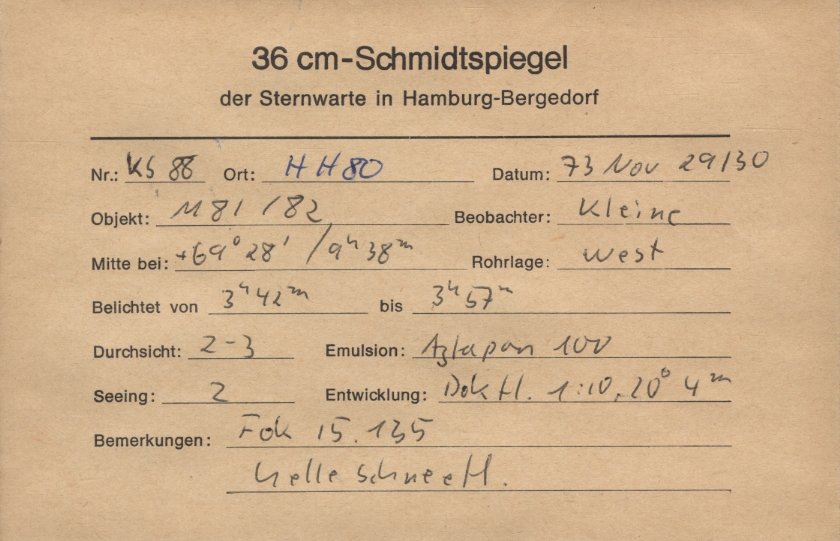 36 cm-Schmidtspiegel
der Sternwarte in Hamburg-Bergedorf
Nr.: KS 88 Ort: HH80 Datum: 73 Nov 29/30
Objekt: M81/82 Beobachter: Kleine
Mitte bei: +69° 28' / 9h 38m Rohrlage: West
Belichtet von 3h 42m bis 3h 57m
Durchsicht: 2-3 Emulsion: 100
Seeing: 2 Entwicklung: 1:10, 20° 4m
Bemerkungen: Fok 15.135
helle